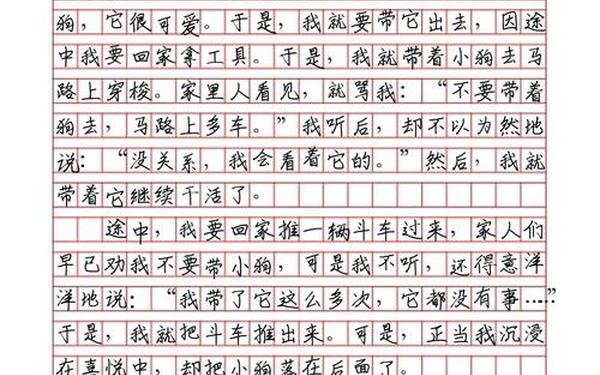 狗，它很可爱。于是，我就要带它出去，因途
中我要回家拿工具。于是，我就带着小狗去马
路上穿梭。家里人看见，就骂我：“不要带着
狗去，马路上多车。”我听后，却不以为然地
说：“没关系，我会看着它的。”然后，我就
带着它继续干活了。
途中，我要回家推一辆斗车过来，家人们
早已劝我不要带小狗，可是我不听，还得意洋
洋地说：“我带了它这么多次，它都没有事……”
于是，我就把斗车推出来。可是，正当我沉浸
在喜悦中，却把小狗落在后面了。